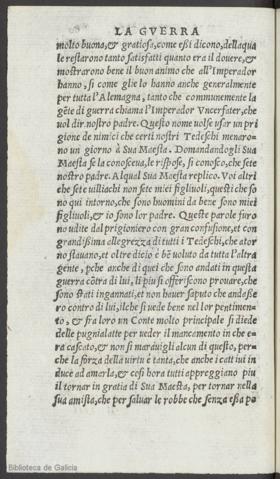 LA GVERRA
molto buona, & gratiosa, come eßi dicono, della qua
le restarono tanto satisfatti quanto era il douere, &
mostrarono bene il buon animo che all'Imperador
hanno, si come glie lo hanno anche generalmente
per tutta l'Alemagna, tanto che communemente la
gẽte di guerra chiama l'Imperador Vncersfater, che
vol dir nostro padre. Questo nome uolse usar un pri
gione de nimici che certi nostri Tedeschi menaro=
no un giorno à Sua Maesta. Domandandogli Sua
Maesta se la conosceua, le rispose, si conosco, che sete
nostro padre. Al qual Sua Maesta replico. Voi altri
che sete villiachi non sete miei figliuoli, questi che so
no qui intorno, che sono huomini da bene sono miei
figliuoli, & io sono lor padre. Queste parole furo=
no udite dal prigioniero con gran confusione, et con
grandißima allegrezza di tutti i Tedeschi, che ator
no stauano, et oltre diciò è bẽ voluto da tutta l'altra
gente, pche anche di quei che sono andati in questa
guerra cõtra di lui, li piu si offeriscono prouare, che
sono stati ingannati, et non hauer saputo che andasse
ro contro di lui, ilche si uede bene nel lor pentimen=
to, & fra loro un Conte molto principale si diede
delle pugnialatte per ueder il mancamento in che e=
ra cascato, & non si marauigli alcun di questo, per=
che la forza della virtu è tanta, che anche i cattiui in
duce ad amarla, & cosi hora tutti appreggiano piu
il tornar in gratia di Sua Maesta, per tornar nella
sua amista, che per saluar le robbe che senza essa po
Biblioteca de Galicia